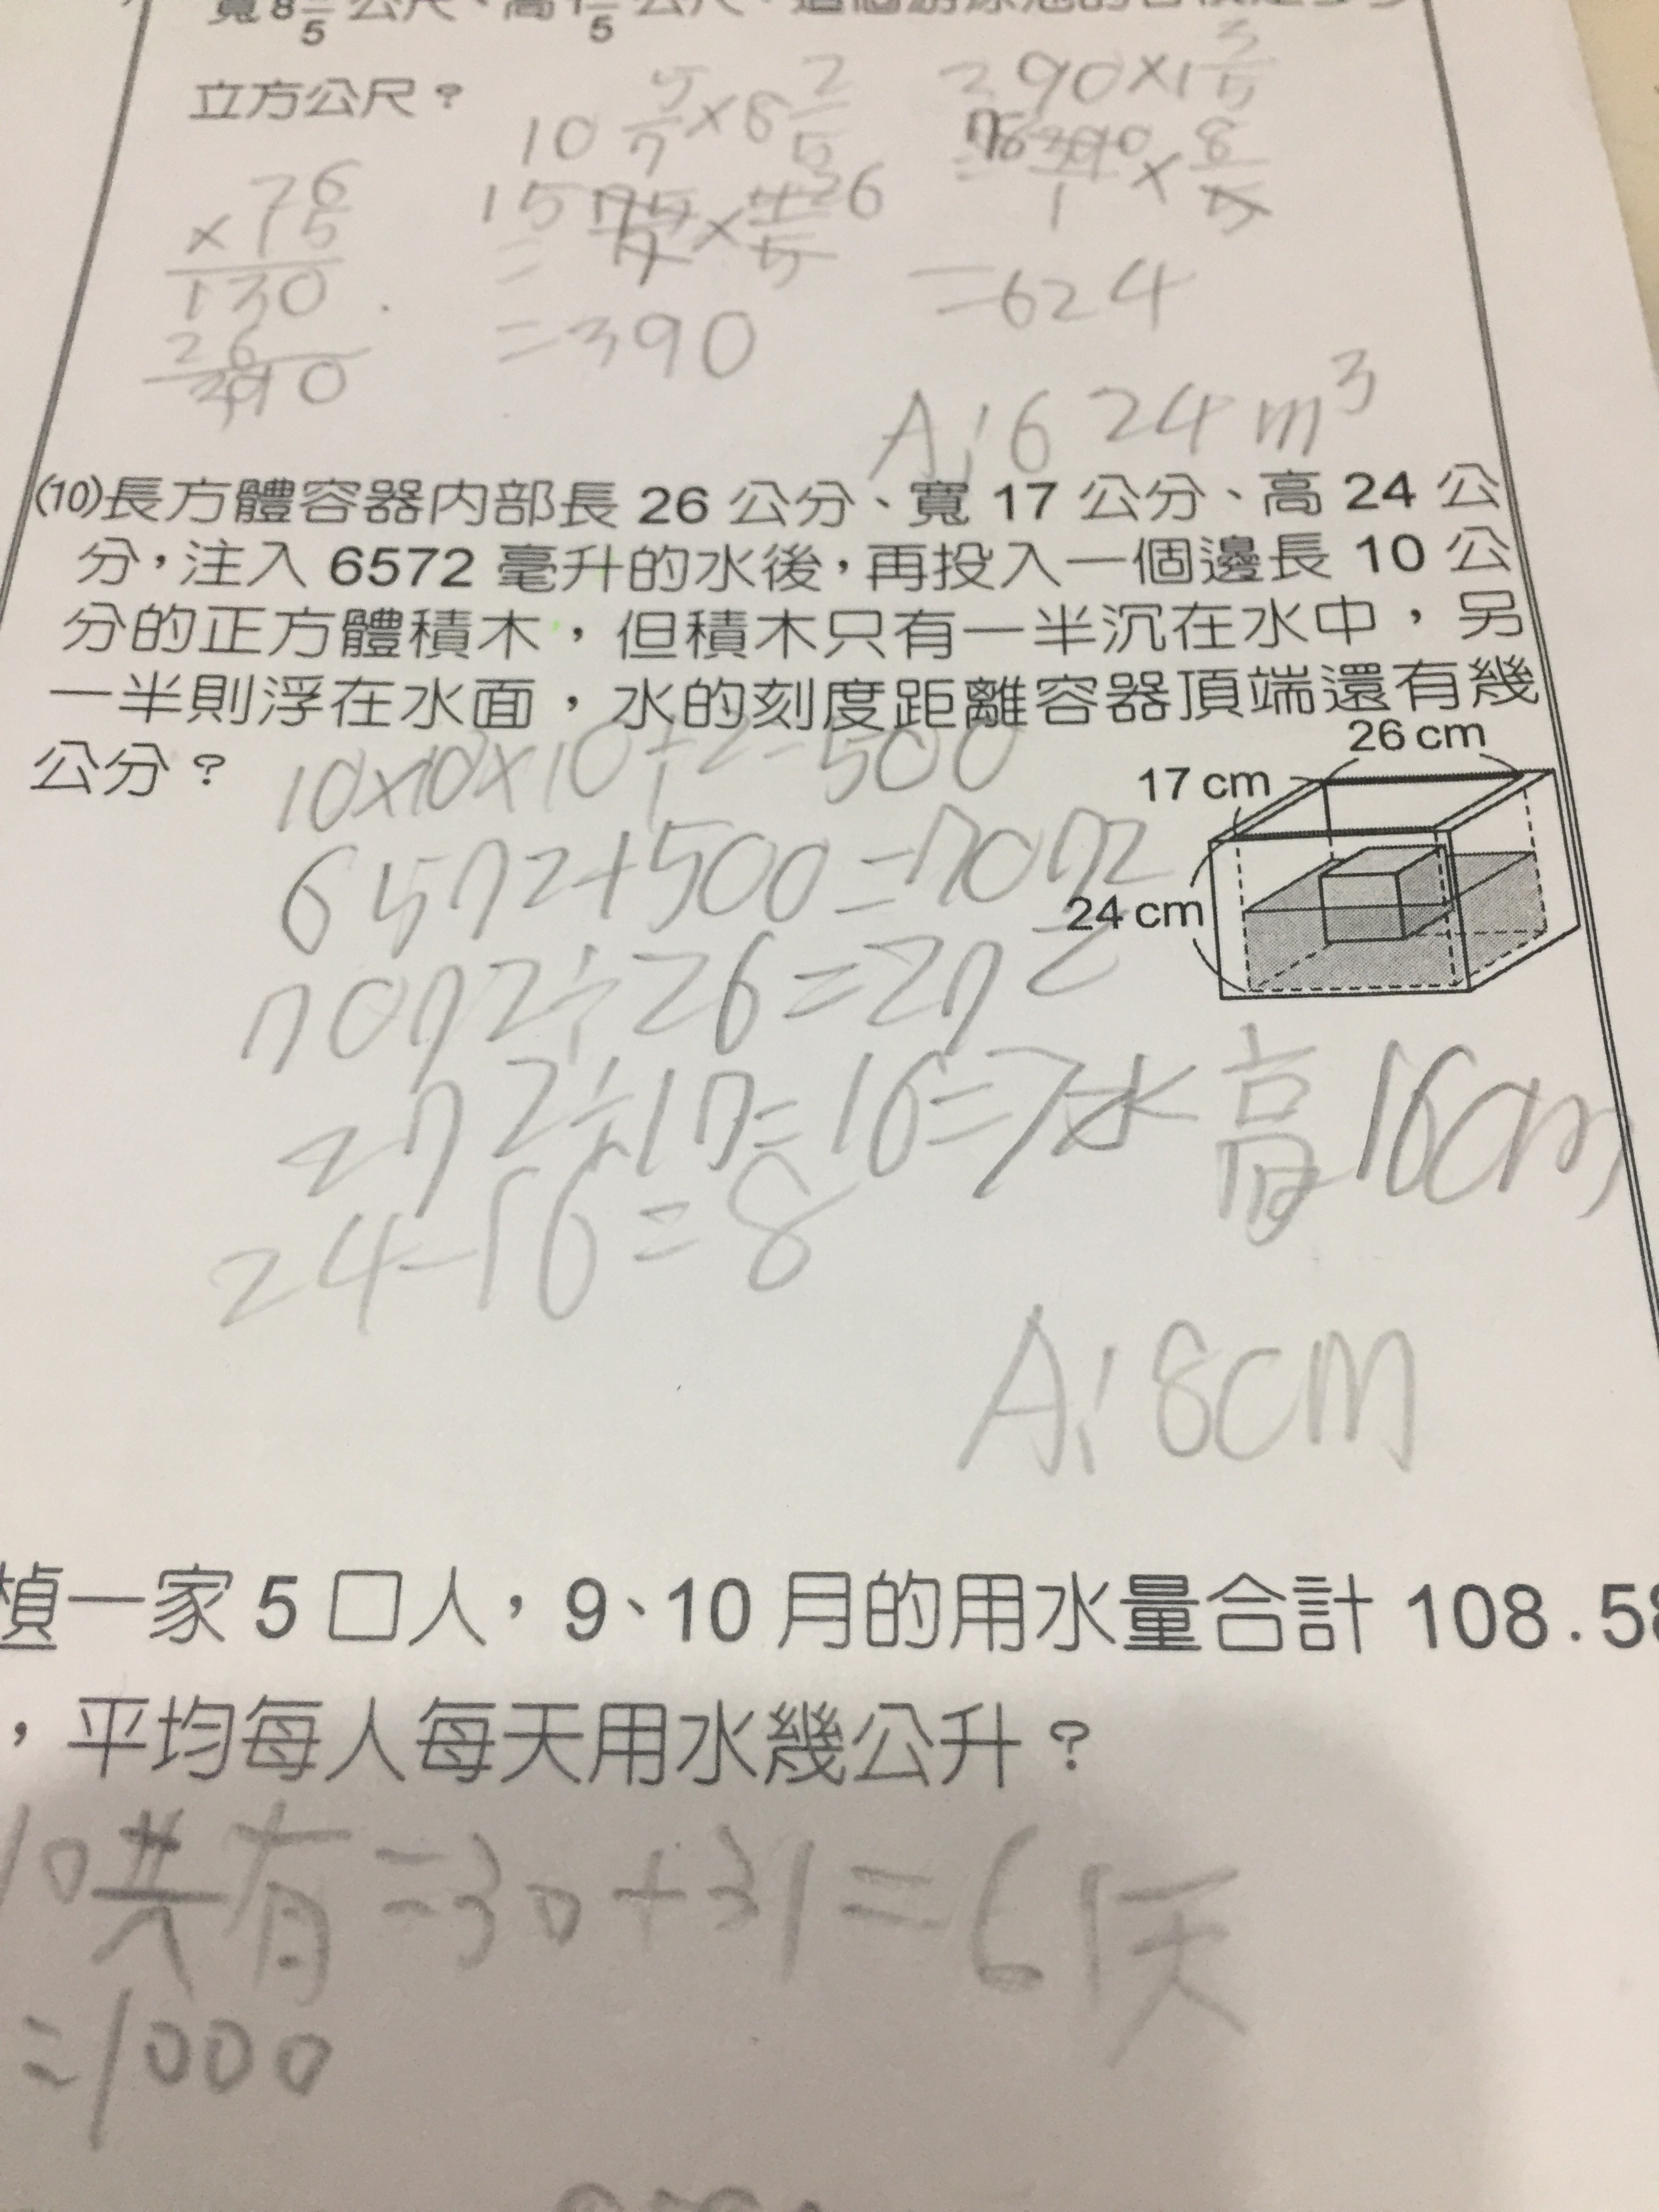 立方公尺？
10 5/7 × 8 2/5
390×1 3/5
= 390/1 × 8/5
=390
=624
A:624m³
(10)長方體容器內部長 26 公分、寬 17 公分、高 24 公
分，注入 6572 毫升的水後，再投入一個邊長 10 公
分的正方體積木，但積木只有一半沉在水中，另
一半則浮在水面，水的刻度距離容器頂端還有幾
公分？
10×10×10÷2=500
26 cm
17 cm
24 cm
6572+500=7072
7072÷26=272
272÷17=16=>水高16cm
24-16=8
A:8cm
楨一家 5 口人，9、10 月的用水量合計 108.58
，平均每人每天用水幾公升？
10共有=30+31=61天
=1000